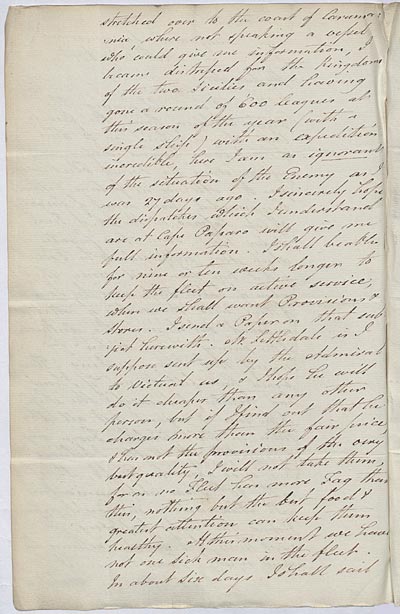 stretched over to the coast of Carama:
nia where not speaking a vessel
who could give me information, I
became distressed for the Kingdom
of the two Sicilies and having
gone a round of 600 leagues at
this season of the year (with a
single ship) with an expedition
incredible here I am as ignorant
of the situation of the Enemy as I
was 27 days ago. I sincerely hope
the dispatches which I understand
are at Cape Passaro will give me
full information. I shall be able
for nine or ten weeks longer to
keep the fleet on active service,
when we shall want Provisions &
stores. I send a Paper on that sub
ject herewith. Mr Littledale is I
suppose sent up by the Admiral
to Victual us, & I hope he will
do it cheaper than any other
person, but if I find out that he
charges more than the fair price
& has not the provisions of the very
best quality, I will not take them,
for as no Fleet has more Fag than
this, nothing but the best food &
greatest attention can keep them
healthy. At this moment we have
not one sick man in the fleet.
In about six days I shall sail